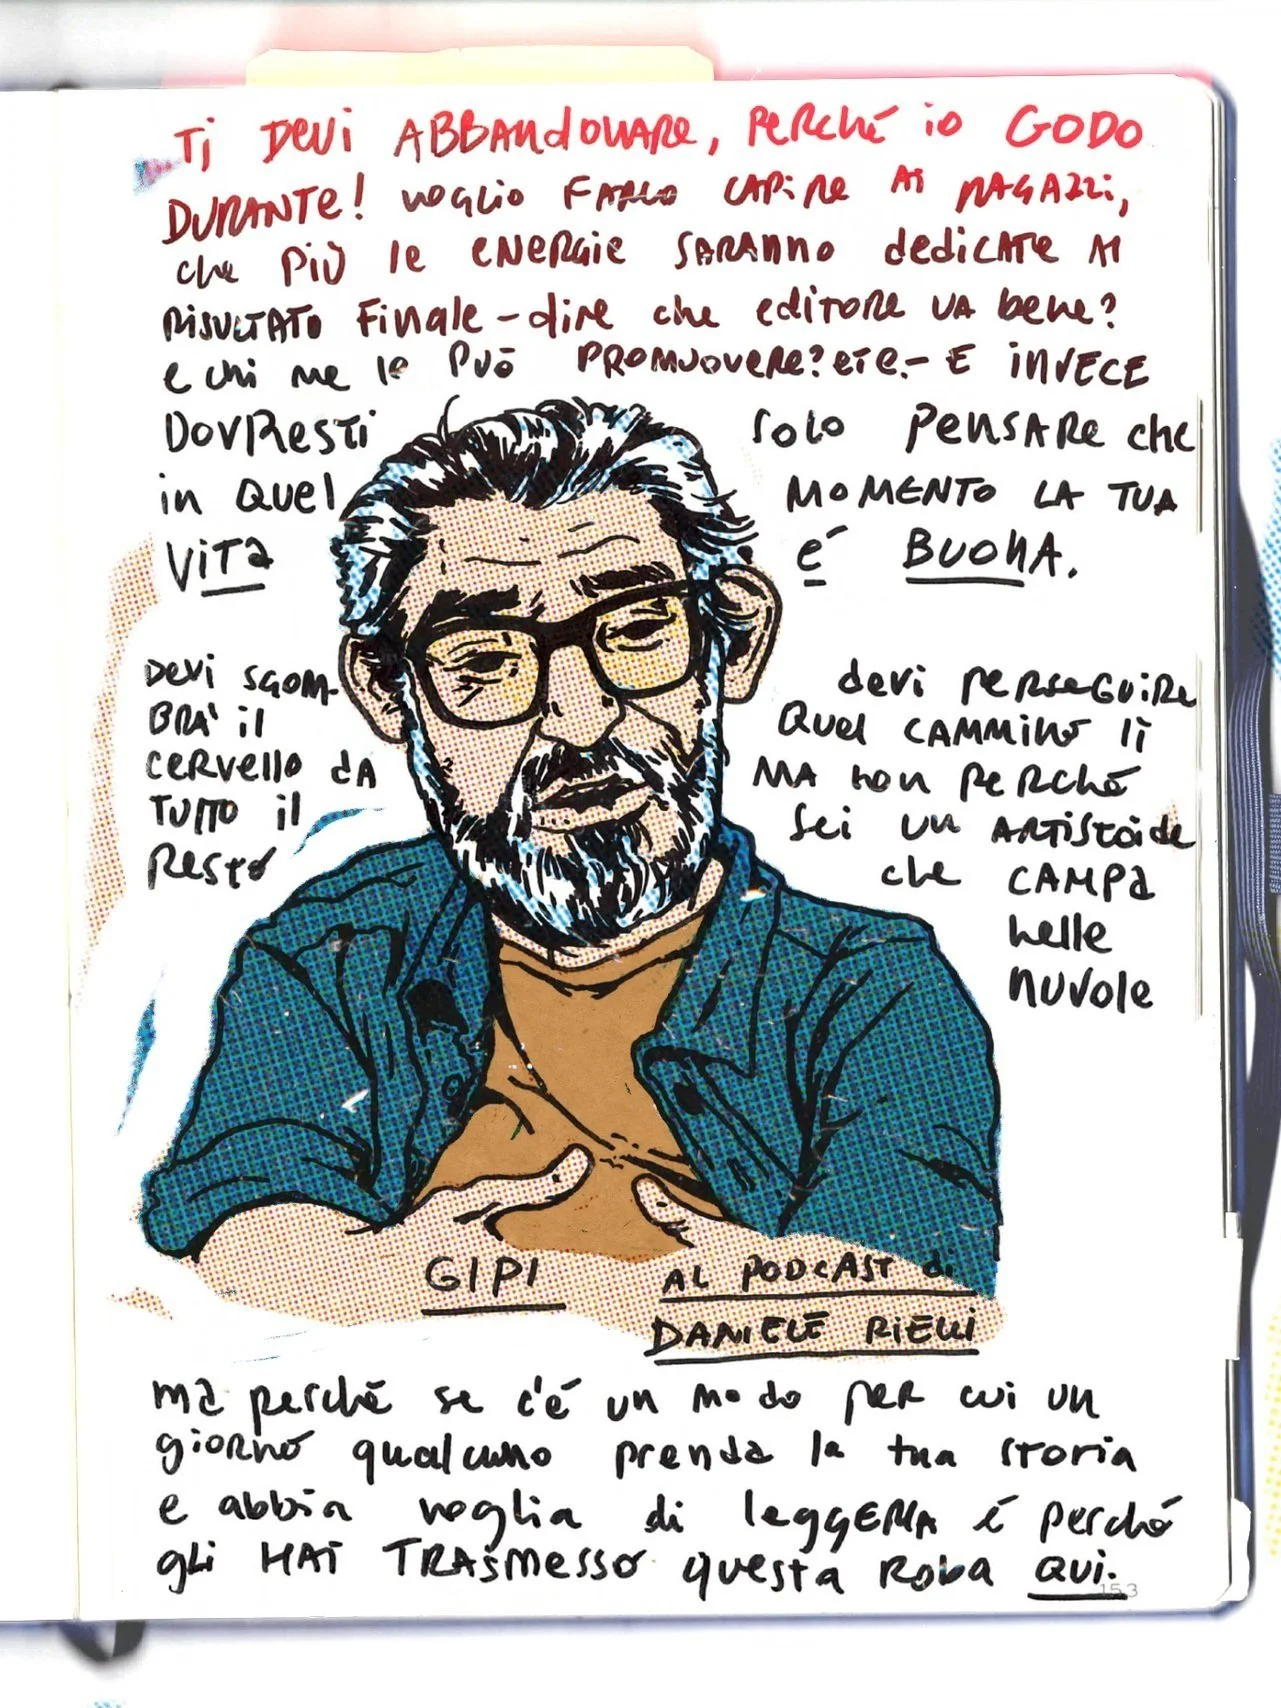 Ti DEVI ABBANDONARE, PERCHÉ io GODO
DURANTE! VOGLIO FARLO CAPIRE AI RAGAZZI,
che PIÙ le ENERGIE SARANNO dedicATE AL
RISULTATO Finale - dire che editORE VA bene?
e chi me lo PUÒ PROMUOVERE? etc. - E iNVECE
DOVRESTI SOLO PENSARE che
in QUEL MOMENTO LA TUA
VITA É BUONA.
DEVI SGOM-
BRA' il
CERVELLO dA
TUTTO il
RESTO
devi PERSEGUIRE
QUEL CAMMINO lì
MA non PERCHÉ
sei un ARTISTOide
che CAMPA
nelle
NUVOLE
GIPI
AL PODCAST di
DANIELE RIELLI
MA perché se c'é un modo PER cui un
giORNO qualcuno prenda la tua sToria
e abbia voglia di leggERLA é perché
gli HAI TRASMESSO questa Roba QUI.
153